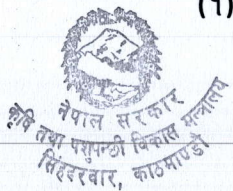 (१)
नेपाल सरकार
कृषि तथा पशुपन्छी विकास मन्त्रालय
सिंहदरवार, काठमाण्डौ